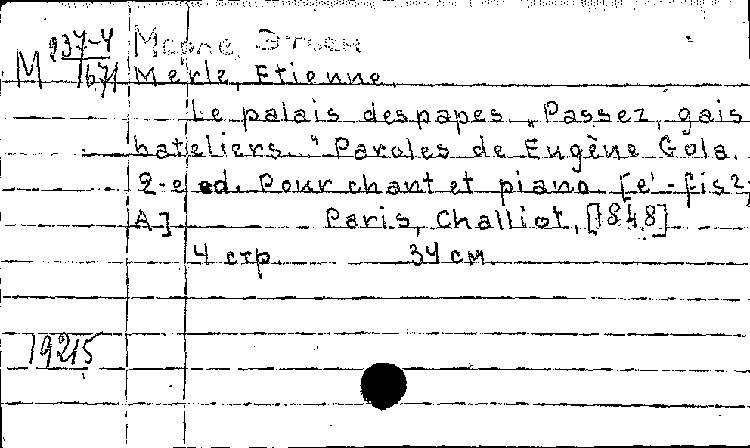 М 237-4/1671
Мерле, Этьен
Merle, Etienne.
Le palais des papes „Passez, gais
bateliers..." Paroles de Eugène Gola.
2-e ed. Pour chant et piano [e'-fis2;
A] Paris, Challiot, [1848]
4 стр. 34 см.
19215